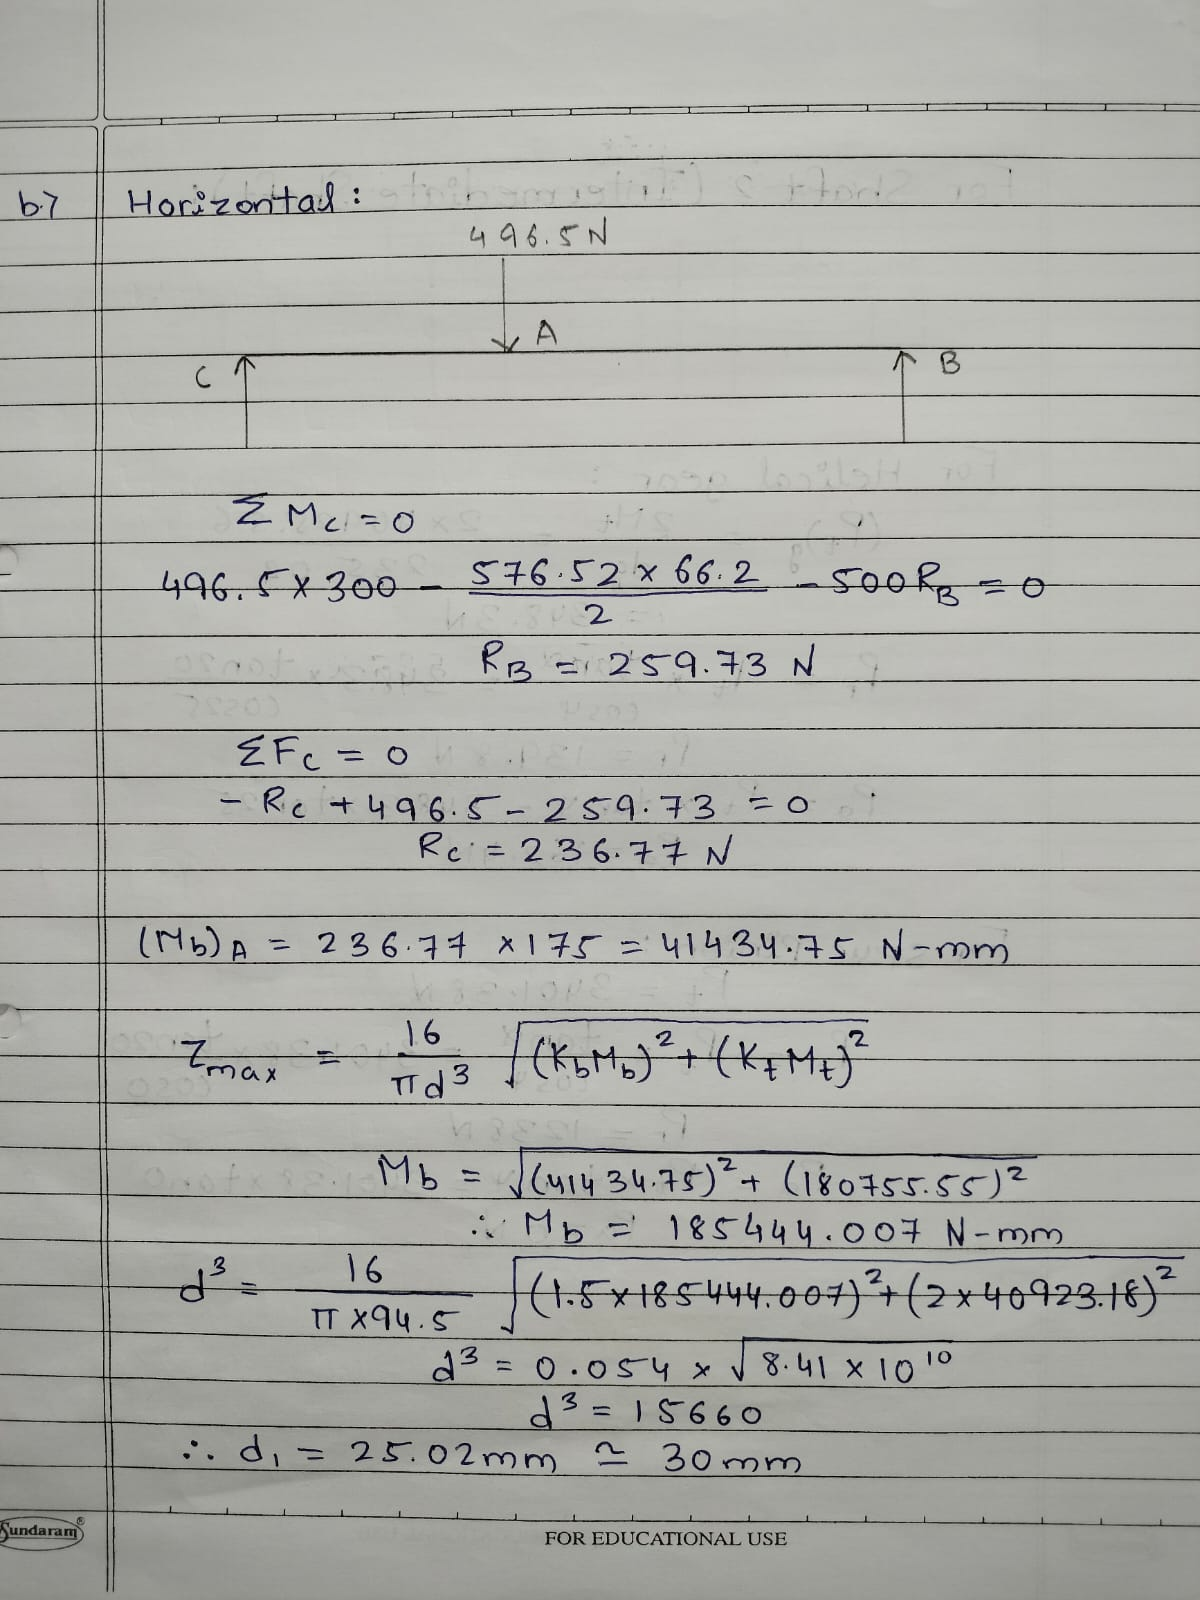 b.7 Horizontal :
496.5 N
A
C B
Σ Mc = 0
496.5 × 300 - 576.52 × 66.2 / 2 - 500 R_B = 0
R_B = 259.73 N
ΣFc = 0
- Rc + 496.5 - 259.73 = 0
Rc = 236.77 N
(Mb)A = 236.77 × 175 = 41434.75 N-mm
τmax = 16 / πd³ √(KbMb)² + (KtMt)²
Mb = √(41434.75)² + (180755.55)²
∴ Mb = 185444.007 N-mm
d³ = 16 / π × 94.5 √(1.5×185444.007)² + (2×40923.18)²
d³ = 0.054 × √8.41 × 10¹⁰
d³ = 15660
∴ d₁ = 25.02mm ≃ 30mm
Sundaram®
FOR EDUCATIONAL USE